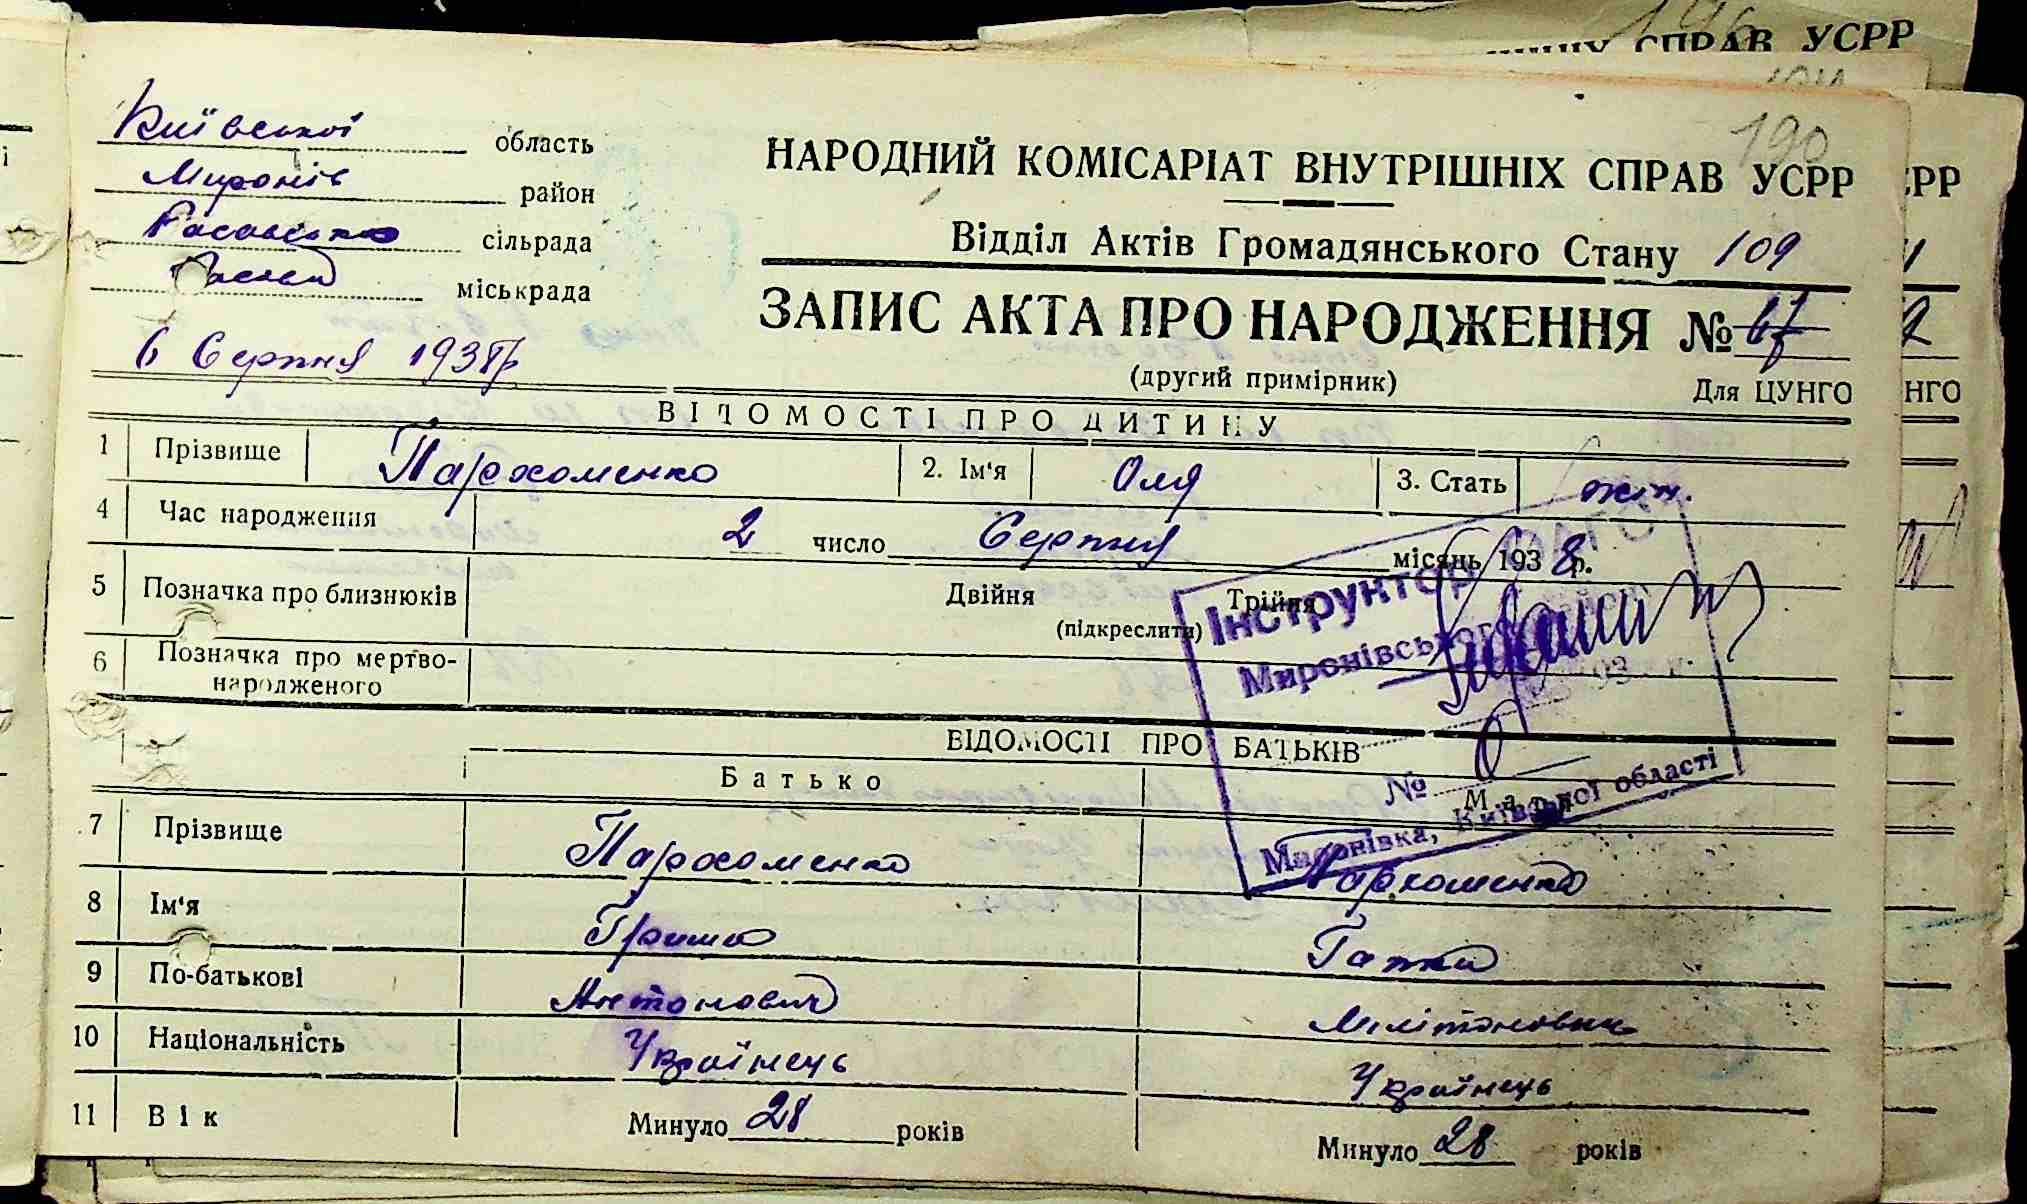 СПРАВ УСРР
190
Київської область
Миронів район
Расавська сільрада
міськрада
6 Серпня 1938р
НАРОДНИЙ КОМІСАРІАТ ВНУТРІШНІХ СПРАВ УСРР
Відділ Актів Громадянського Стану 109
ЗАПИС АКТА ПРО НАРОДЖЕННЯ № 67
(другий примірник)
Для ЦУНГО
ВІДОМОСТІ ПРО ДИТИНУ
1 Прізвище Пархоменко 2. Ім'я Оля 3. Стать жін.
4 Час народження 2 число Серпня місяць 1938 р.
5 Позначка про близнюків Двійня Трійня
(підкреслити)
6 Позначка про мертво-
народженого
Інструктор
Миронівськ
№
Миронівка, Київської області
ВІДОМОСТІ ПРО БАТЬКІВ
Батько Мати
7 Прізвище Пархоменко Пархоменко
8 Ім'я Гриша Гапка
9 По-батькові Антонович Мілітоновна
10 Національність Українець Українець
11 Вік Минуло 28 років Минуло 28 років